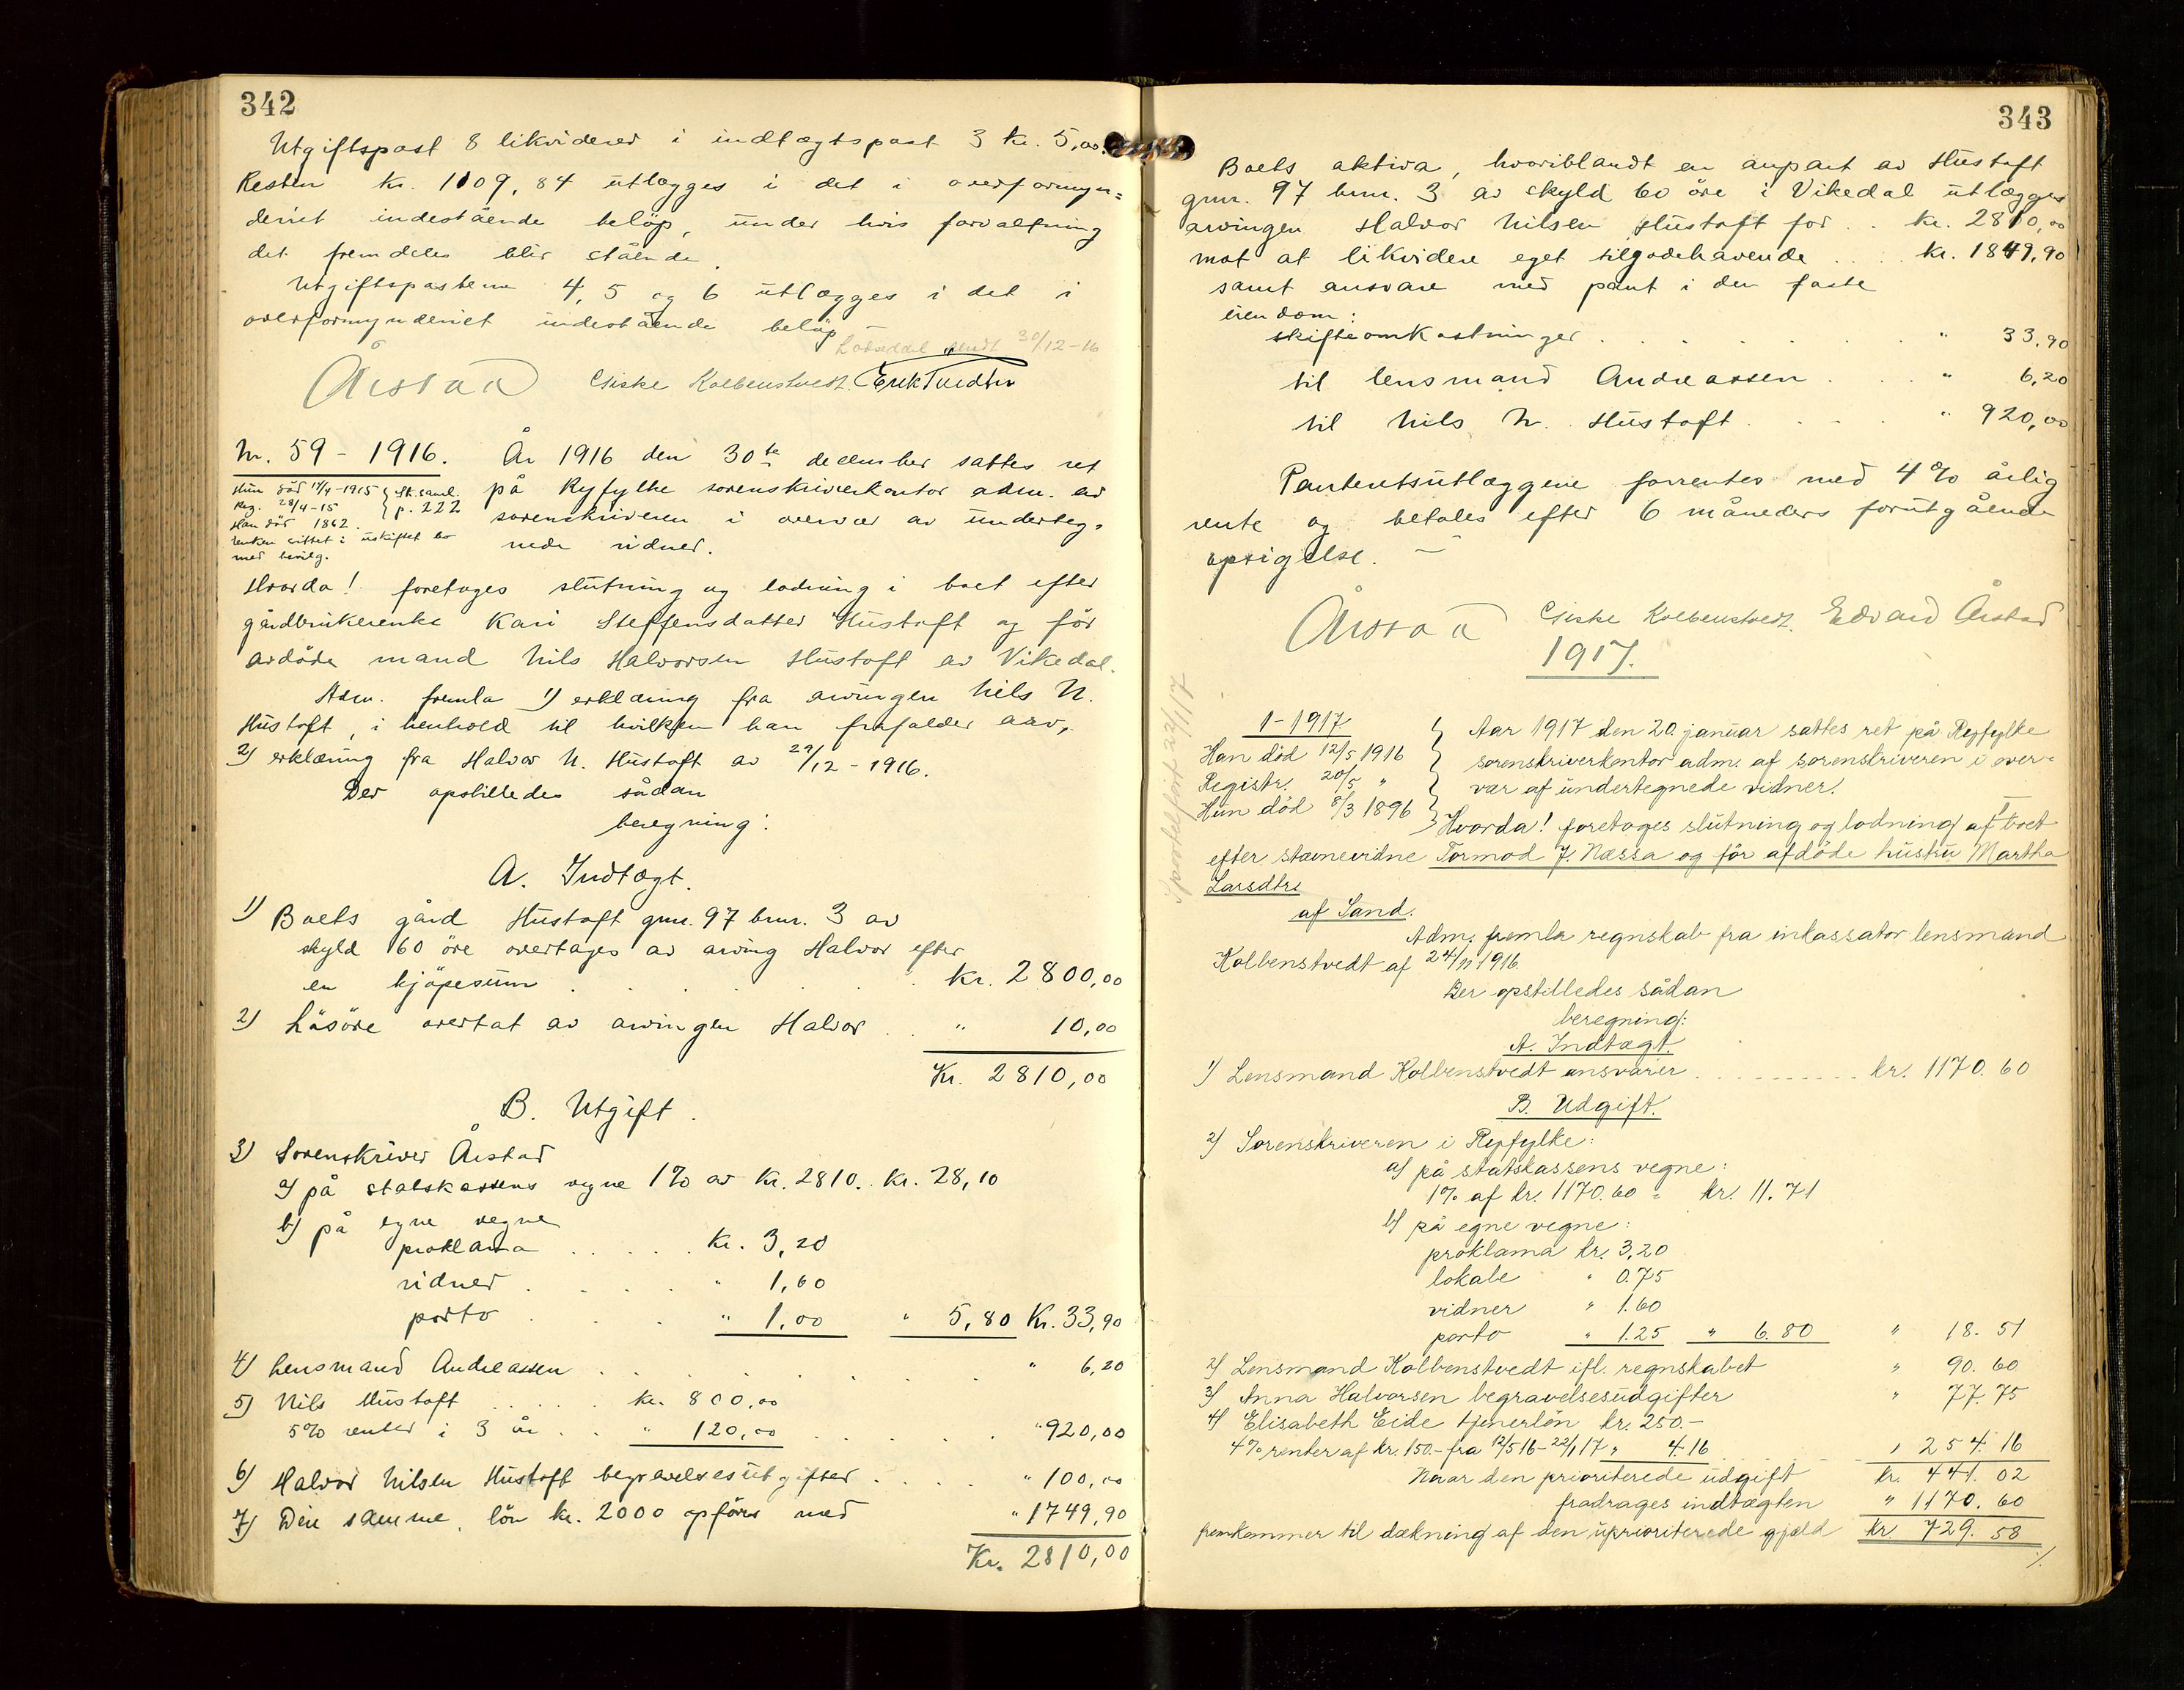 342
Utgiftspost 8 likvideres i indtægtspost 3 kr. 5,00.
Resten kr. 1109,84 utlægges i det i overformyn=
deriet indestående beløp, under hvis forvaltning
det fremdeles blir stående.
Utgiftsposterne 4, 5 og 6 utlægges i det i
overformynderiet indestående beløp —
Lodseddel sendt 30/12-16
Årstad Giske Kolbenstvedt. Erik Tuedtn
Nr. 59 - 1916. År 1916 den 30te december sattes ret
på Ryfylke sorenskriverkontor adm. av
sorenskriveren i overvær av underteg-
nede vidner.
Hun død 17/4-1915
Reg. 28/4-15
Sk.saml. p. 222
Han død 1862.
Enken sittet i uskiftet bo
med bevilg.
Hvorda! foretoges slutning og lodning i boet efter
gårdbrukerenke Kari Steffensdatter Hustoft og før
avdøde mand Nils Halvorsen Hustoft av Vikedal.
Adm. fremla 1) erklæring fra arvingen Nils N.
Hustoft, i henhold til hvilken han frafalder arv,
2) erklæring fra Halvor N. Hustoft av 29/12-1916.
Der opstilledes sådan
beregning:
A. Indtægt.
1) Boets gård Hustoft gnr. 97 bnr. 3 av
skyld 60 öre overtages av arving Halvor efter
en kjøpesum . . . . . . kr. 2800,00
2) Løsöre overtat av arvingen Halvor . . " 10,00
Kr. 2810,00
B. Utgift.
3) Sorenskriver Årstad
a) på statskassens vegne 1% av kr. 2810. kr. 28,10
b) på egne vegne
proklama . . . . . kr. 3,20
vidner . . . . " 1,60
porto . . . " 1,00 " 5,80 Kr. 33,90
4) Lensmand Andreassen . . . . . . . " 6,20
5) Nils Hustoft . . . . . kr. 800,00
5% renter i 3 år . . " 120,00 . . . . . " 920,00
6) Halvor Nilsen Hustoft begravelsesutgifter . . . . " 100,00
7) Den samme, løn kr. 2000 opføres med " 1749,90
Kr. 2810,00
343
Boets aktiva, hvoriblandt en anpart av Hustoft
gnr. 97 bnr. 3 av skyld 60 öre i Vikedal utlægges
arvingen Halvor Nilsen Hustoft for . . kr. 2810,00
mot at likvidere eget tilgodehavende . . . . kr. 1849,90
samt ansvare med pant i den faste
eiendom:
skifteomkostninger . . . . . . . " 33,90
til lensmand Andreassen . . . " 6,20
til Nils N. Hustoft . . . . " 920,00
Panteretsutlæggene forrentes med 4% årlig
rente og betales efter 6 måneders forutgående
opsigelse. —
Årstad Giske Kolbenstvedt. Edvard Årstad
1917.
Sportelført 22/1 17
1-1917
Han død 12/5 1916
Registr. 20/5 "
Hun död 8/3 1896
Aar 1917 den 20. januar sattes ret på Ryfylke
sorenskriverkontor adm. af sorenskriveren i over-
vær af undertegnede vidner.
Hvorda! foretoges slutning og lodning af boet
efter stævnevidne Tormod J. Næssa og før afdöde hustru Martha
Larsdtr.
af Sand.
Adm. fremla regnskab fra inkassator lensmand
Kolbenstvedt af 24/11 1916.
Der opstilledes sådan
beregning:
A. Indtægt.
1) Lensmand Kolbenstvedt ansvarer . . . . . . . . . . . kr. 1170.60
B. Udgift.
2) Sorenskriveren i Ryfylke:
a) på statskassens vegne:
1% af kr. 1170.60 = kr. 11.71
b) på egne vegne:
proklama kr. 3,20
lokale " 0.75
vidner " 1.60
porto " 1.25 " 6.80 " 18.51
2) Lensmand Kolbenstvedt ifl. regnskabet " 90.60
3) Anna Halvorsen begravelsesudgifter " 77.75
4) Elisabeth Eide tjenerlön kr. 250.-
4% renter af kr. 150.- fra 12/5 16 - 22/1 17 " 4.16 " 254.16
Naar den prioriterede udgift kr. 441.02
fradrages indtægten " 1170.60
fremkommer til dækning af den uprioriterede gjæld kr. 729.58
./.